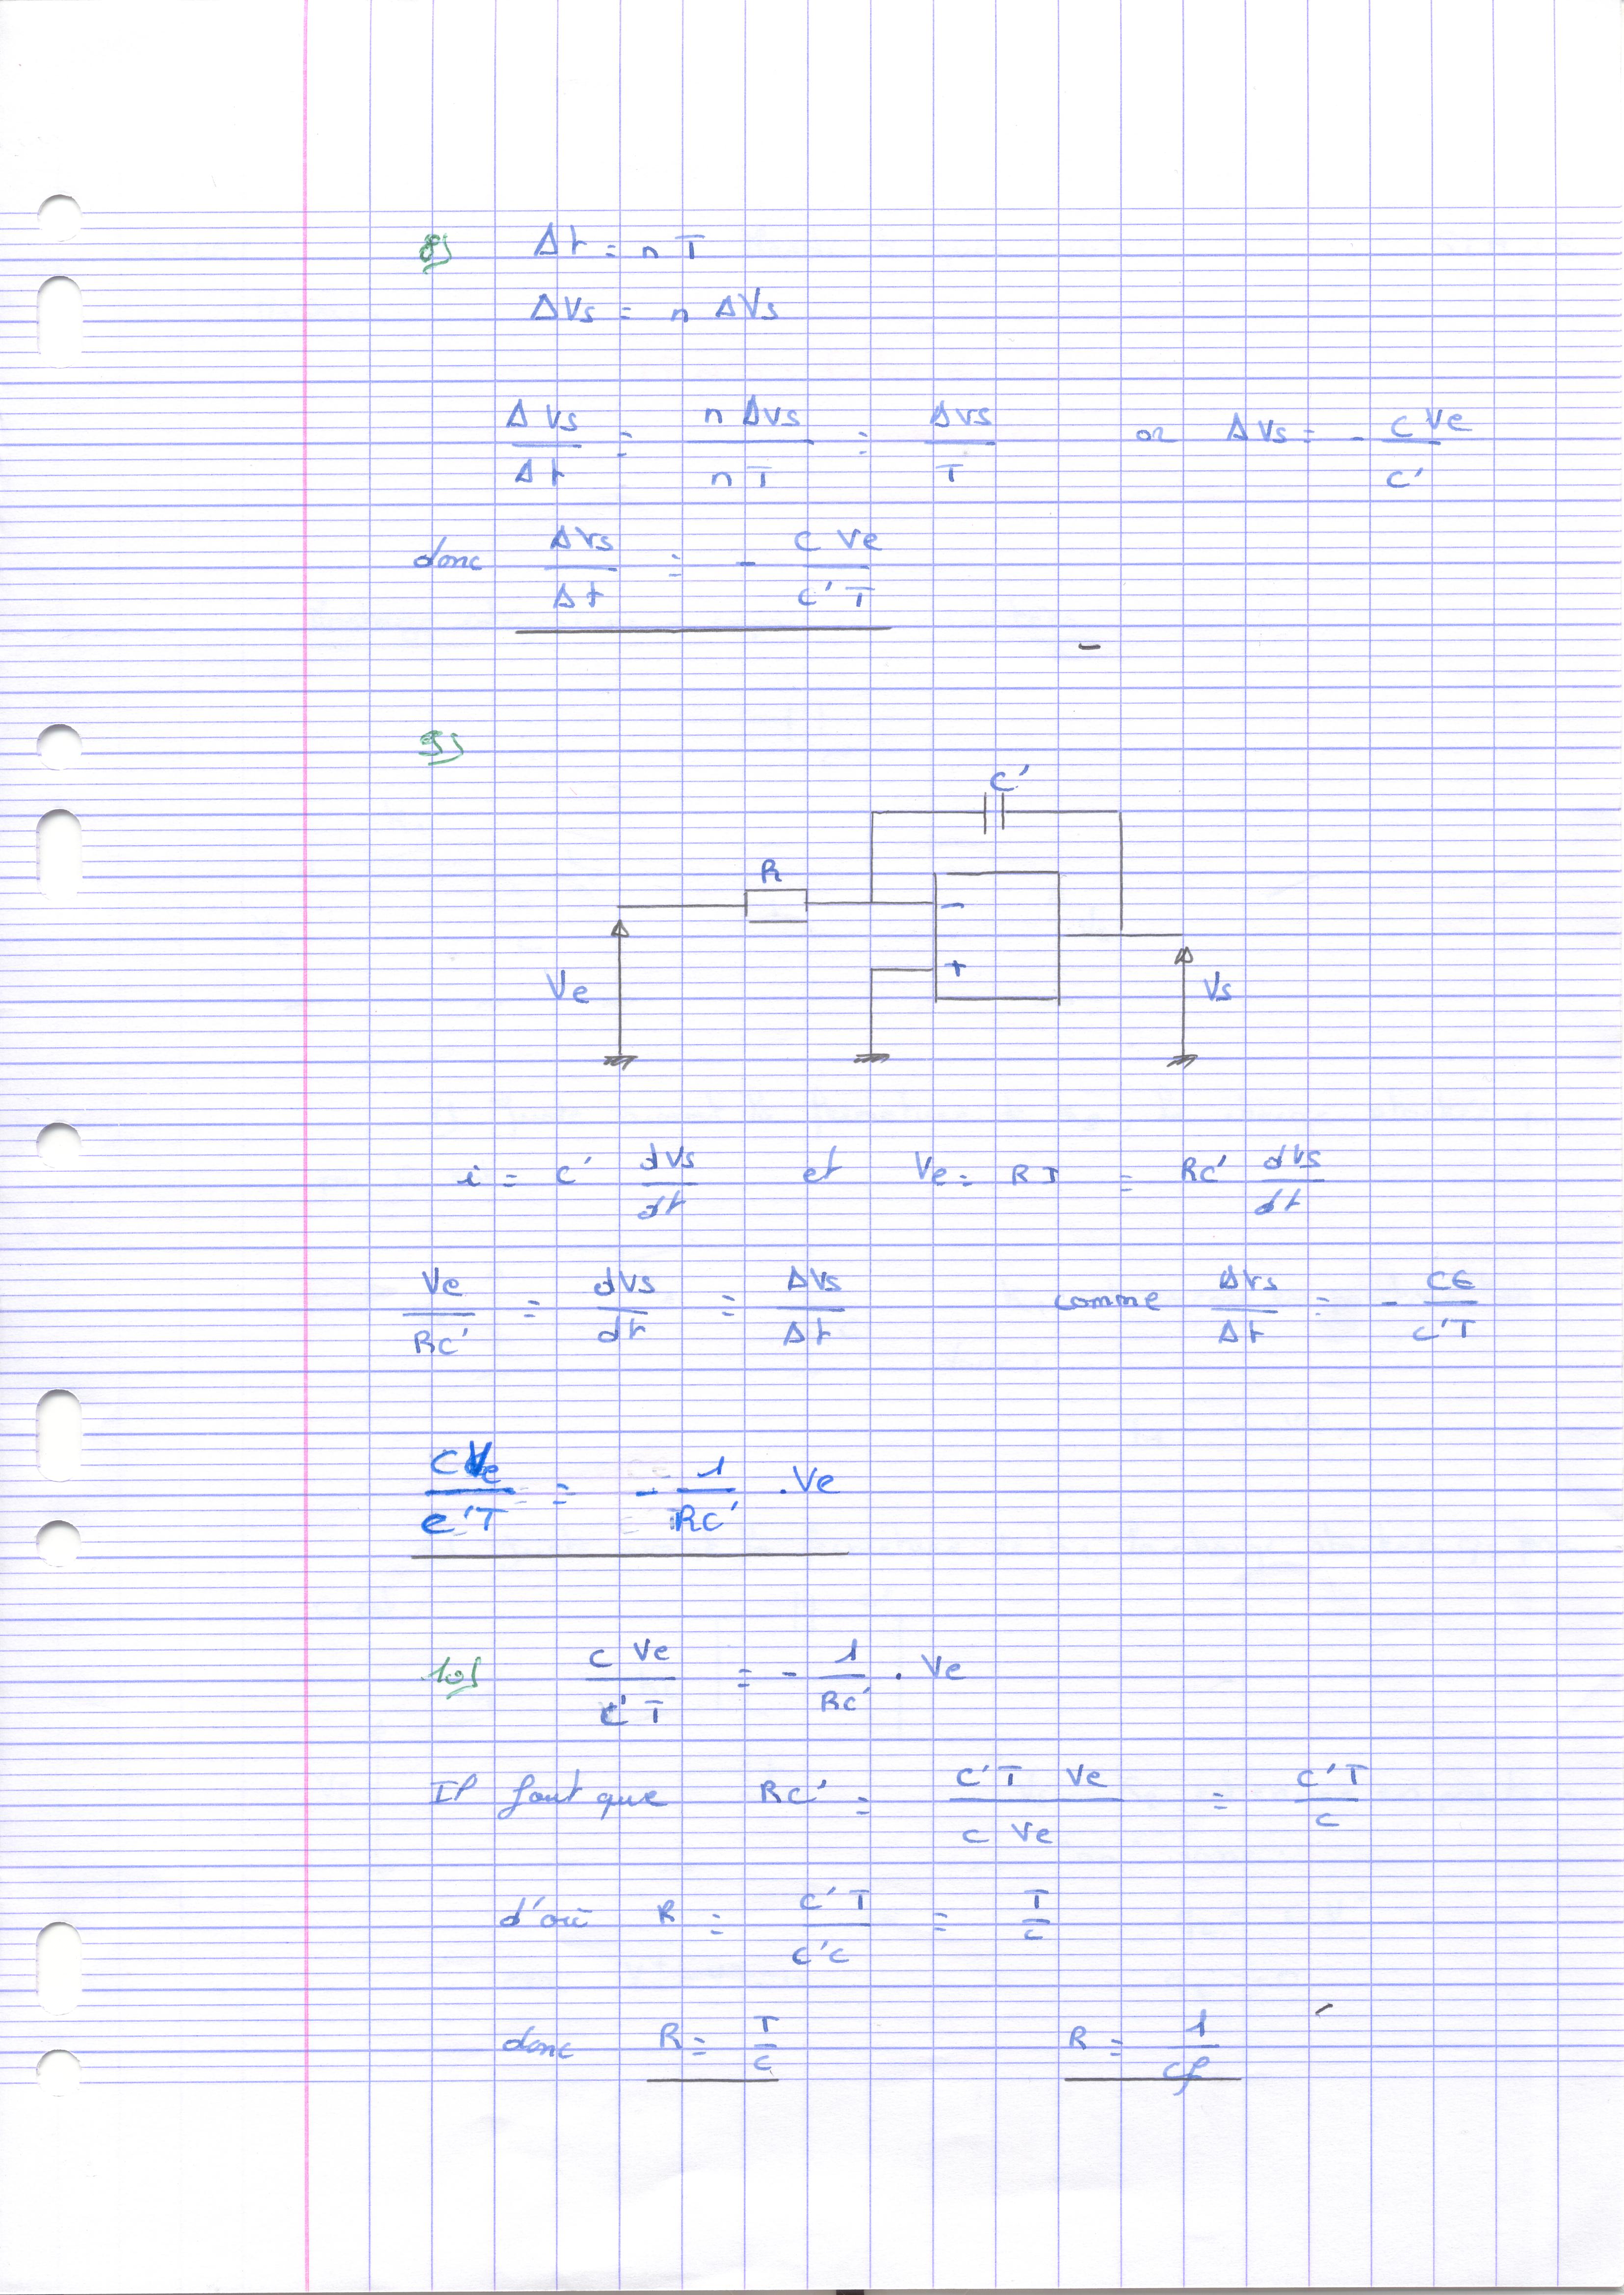 8)
Δt = n T
ΔVs = n ΔVs
ΔVs/Δt = n ΔVs/n T = ΔVs/T or ΔVs = - C Ve/C'
donc ΔVs/Δt = - C Ve/C' T
9)
C'
R
-
+
Ve
Vs
i = C' dVs/dt et Ve = R I = RC' dVs/dt
Ve/RC' = dVs/dt = ΔVs/Δt comme ΔVs/Δt = - CE/C'T
C Ve/C'T = - 1/RC' . Ve
10)
C Ve/C' T = - 1/RC' . Ve
Il faut que RC' = C'T Ve/C Ve = C'T/C
d'où R = C'T/C'C = T/C
donc R = T/C R = 1/Cf